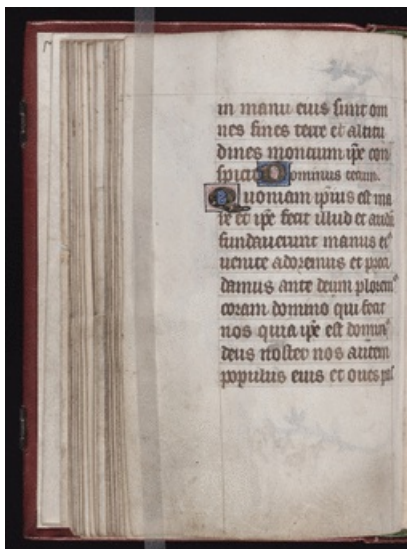 in manu eius sunt om
nes fines terre et altitu
dines montium ipe con
spicit Dominus tecum.
Quoniam ipius est ma
re et ipe fecit illud et aridā
fundauerunt manus ei⁹
uenite adoremus et proci
damus ante deum plorem⁹
coram domino qui fecit
nos quia ipe est domin⁹
deus noster nos autem
populus eius et oues pas